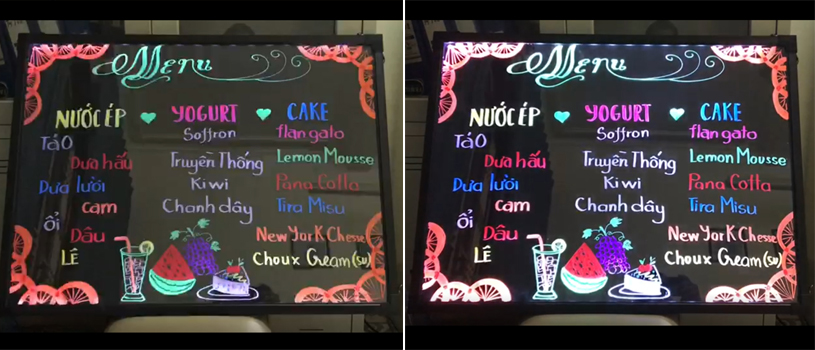 Menu
NƯỚC ÉP YOGURT CAKE
TáO Soffron flan gato
Dưa hấu Truyền Thống Lemon Mousse
Dưa lưới Kiwi Pana Cotta
cam Chanh dây Tira Misu
ổi
Dâu New YorK Chesse
LÊ Choux Cream (su)
Menu
NƯỚC ÉP YOGURT CAKE
TáO Soffron flan gato
Dưa hấu Truyền Thống Lemon Mousse
Dưa lưới Kiwi Pana Cotta
cam Chanh dây Tira Misu
ổi
Dâu New YorK Chesse
LÊ Choux Cream (su)